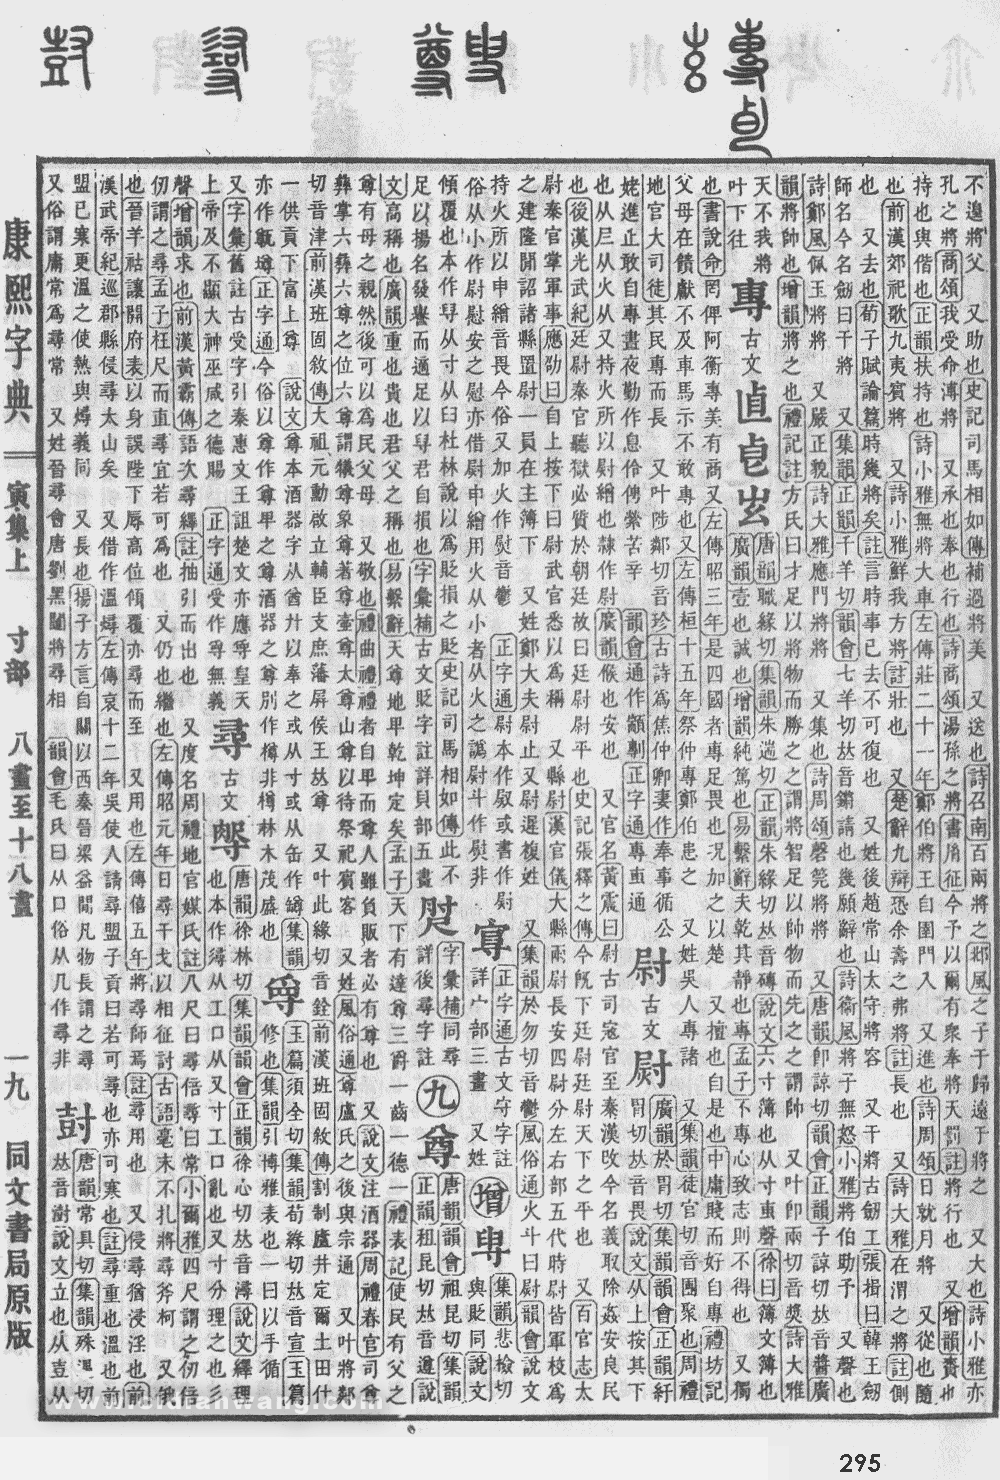 康熙字典 寅集上 寸部 八畫至十八畫 一九 同文書局原版
不遑將父 又助也史記司馬相如傳補過將美 又送也詩召南百兩將之邶風之子于歸遠于將之 又大也詩小雅亦
孔之將商頌我受命溥將 又承也奉也詩商頌湯孫之將書胤征今予以爾有衆奉將天罰註將行也 又增韻賷也
持也與與偕也正韻扶持也詩小雅無將大車左傳莊二十一年鄭伯將王自圉門入 又進也詩周頌日就月將 又從也隨
也前漢郊祀歌九夷賓將 又詩小雅鮮我方將註壯也 又楚辭九辯恐余壽之弗將註長也 又詩大雅在渭之將註側
也 又去也荀子賦論篇時幾將矣註言時事已去不可復也 又姓後趙常山太守將容 又干將古劒工張揖曰韓王劒
師名今名劒曰干將 又集韻正韻千羊切韻會七羊切𠀤音鏘請也幾願辭也詩衞風將子無怒小雅將伯助予 又聲也
詩鄭風佩玉將將 又嚴正貌詩大雅應門將將 又集也詩周頌磬筦將將 又唐韻卽諒切韻會正韻子諒切𠀤音醬廣
韻將帥也增韻將之也禮記註方氏曰才足以將物而勝之之謂將智足以帥物而先之之謂帥 又叶卽兩切音奬詩大雅
天不我將
叶下往
專 古文 唐韻職緣切集韻朱遄切正韻朱緣切𠀤音磚說文六寸簿也从寸叀聲徐曰簿文簿也 又獨
廣韻壹也誠也增韻純篤也易繫辭夫乾其靜也專孟子不專心致志則不得也
也書說命罔俾阿衡專美有商又左傳昭三年是四國者專足畏也况加之以楚 又擅也自是也中庸賤而好自專禮坊記
父母在饋獻不及車馬示不敢專也又左傳桓十五年祭仲專鄭伯患之 又姓吳人專諸 又集韻徒官切音團聚也周禮
地官大司徒其民專而長 又叶陟鄰切音珍古詩爲焦仲卿妻作奉事循公
姥進止敢自專晝夜勤作息伶俜縈苦辛 韻會通作顓剸正字通專叀通
尉 古文 𡬳 廣韻於胃切集韻韻會正韻紆胃切𠀤音畏說文从上按其下
也从𡰥从火从又持火所以尉繒也隷作尉廣韻候也安也 又官名黃震曰尉古司寇官至秦漢攺今名義取除姦安良民
也後漢光武紀廷尉秦官聽獄必質於朝廷故曰廷尉尉平也史記張釋之傳今旣下廷尉廷尉天下之平也 又百官志太
尉秦官掌軍事應劭曰自上按下曰尉武官悉以爲稱 又縣尉漢官儀大縣兩尉長安四尉分左右部五代時尉皆軍校爲
之建隆閒詔諸縣置尉一員在主簿下 又姓鄭大夫尉止又尉遲複姓 又集韻於勿切音鬱風俗通火斗曰尉韻會說文
持火所以申繒音畏今俗又加火作熨音鬱 正字通尉本作㷉或書作尉
俗从小作尉尉安之慰亦借尉申繒用火从小者从火之譌尉斗作熨非
𡬶 詳宀部三畫 正字通古文守字註 又姓
増 𡬯 集韻悲檢切與貶同說文
傾覆也本作㝵从寸从臼杜林說以爲貶損之貶史記司馬相如傳此不
足以揚名發譽而適足以㝵君自損也字彙補古文貶字註詳貝部五畫
字彙補同尋詳後尋字註
九
尊 唐韻韻會祖昆切集韻正韻租昆切𠀤音遵說
文高稱也廣韻重也貴也君父之稱也易繫辭天尊地𤰞乾坤定矣孟子天下有達尊三爵一齒一德一禮表記使民有父之
尊有母之親然後可以爲民父母 又敬也禮曲禮禮者自𤰞而尊人雖負販者必有尊也 又說文注酒器周禮春官司尊
彝掌六尊六彝之位六尊謂犧尊象尊著尊壷尊太尊山尊以待祭祀賓客 又姓風俗通尊盧氏之後與宗通 又叶將鄰
切音津前漢班固敘傳大祖元勳啟立輔臣支庶藩屏侯王𠀤尊 又叶此緣切音銓前漢班固敘傳割制廬井定爾土田什
一供貢下富上尊 說文尊本酒器字从酋廾以奉之或从寸或从缶作罇集韻
亦作甑墫正字通今俗以尊作尊𤰞之尊酒器之尊別作樽非樽林木茂盛也
𡬾 玉篇須全切集韻荀緣切𠀤音宣玉篇修也集韻引博雅表也一曰以手循
又字彙舊註古受字引秦惠文王詛楚文亦應𡬾皇天
上帝及不顯大神巫咸之德賜 正字通受作𡬾無義
尋 古文 唐韻徐林切集韻韻會正韻徐心切𠀤音潯說文繹理
也本作𢒫从工口从又寸工口亂也又寸分理之也彡
聲增韻求也前漢黃霸傳語次尋繹註抽引而出也 又度名周禮地官媒氏註八尺曰尋倍尋曰常小爾雅四尺謂之仞倍
仞謂之尋孟子枉尺而直尋宜若可爲也 又仍也繼也左傳昭元年日尋干戈以相征討古語毫末不扎將尋斧柯 又俄
也晉羊祜讓開府表以身誤陛下辱高位傾覆亦尋而至 又用也左傳僖五年將尋師焉註尋用也 又侵尋猶浸淫也前
漢武帝紀巡郡縣侵尋太山矣 又借作溫燖左傳哀十二年吳使人請尋盟子貢曰若可尋也亦可寒也註尋重也溫也前
盟已寒更溫之使熱與燖義同 又長也揚子方言自關以西秦晉梁益閒凡物長謂之尋
又姓晉尋會唐劉黑闥將尋相 韻會毛氏曰从口俗从几作尋非
又俗謂庸常爲尋常
尌 唐韻常具切集韻殊遇切𠀤音澍說文立也从壴从
295